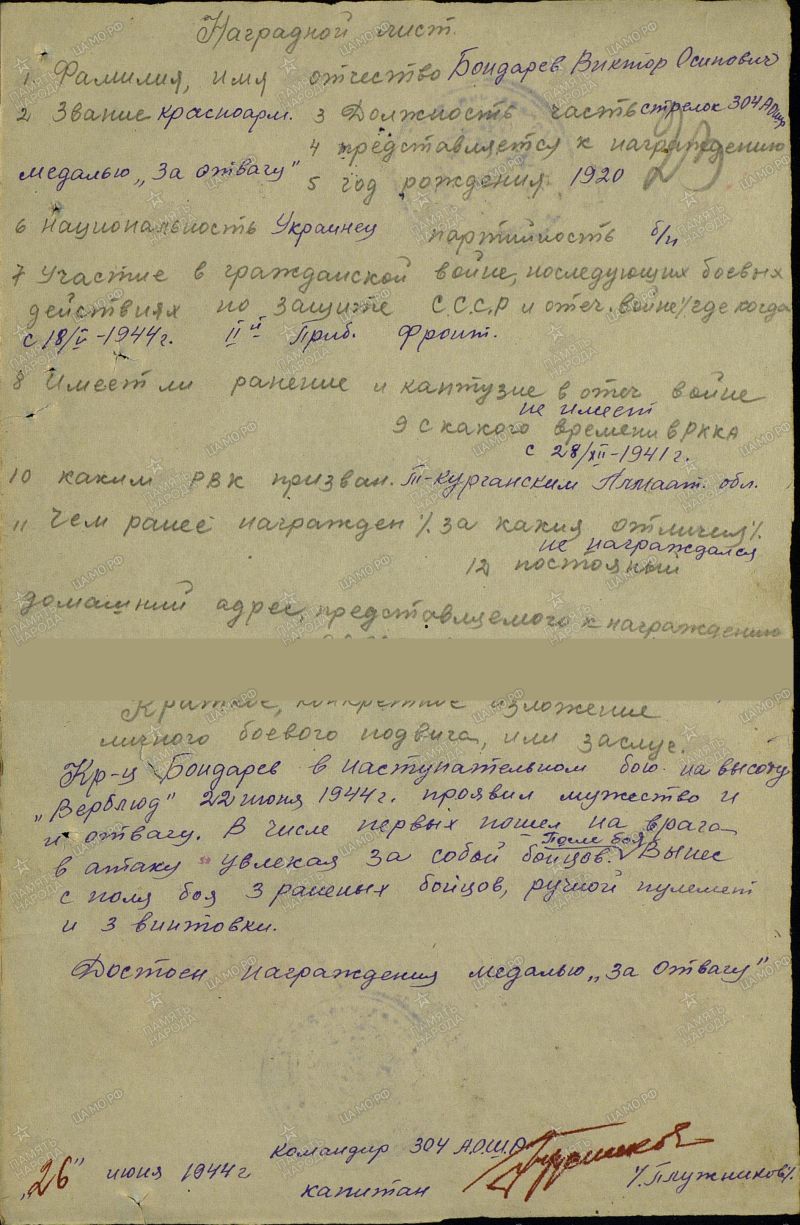 Наградной лист.
1 Фамилия, имя отчество Бондарев Виктор Осипович
2 Звание красноарм. 3 Должность часть стрелок 304 АОШР
4 представляется к награждению
медалью „За отвагу" 5 год рождения 1920
6 Национальность Украинец партийность б/п
7 Участие в гражданской войне, последующих боевых
действиях по защите С.С.С.Р и отеч. войне /где когда
с 18/V-1944г. II й Приб. Фронт.
8 Имеет ли ранение и кантузие в отеч войне
не имеет
9 С какого времени в РККА
с 28/XII-1941г.
10 каким РВК призван. Т-Курганским Алмаат. обл.
11 Чем ранее награжден /. за какия отличия /.
не награждался
12 постоянный
домашний адрес, представляемого к награждению
Краткое, конкретное изложение
личного боевого подвига, или заслуг.
Кр-ц Бондарев в наступательном бою на высоту
„Верблюд" 22 июня 1944г. проявил мужество и
и отвагу. В числе первых пошел на врага
в атаку увлекая за собой бойцов. После боя Вынес
с поля боя 3 раненых бойцов, ручной пулемет
и 3 винтовки.
Достоен награждения медалью „За отвагу"
Командир 304 А.О.Ш.Р
„26" июня 1944г капитан /.Плужников/.
ПАМЯТЬ НАРОДА
ЦАМО.РФ